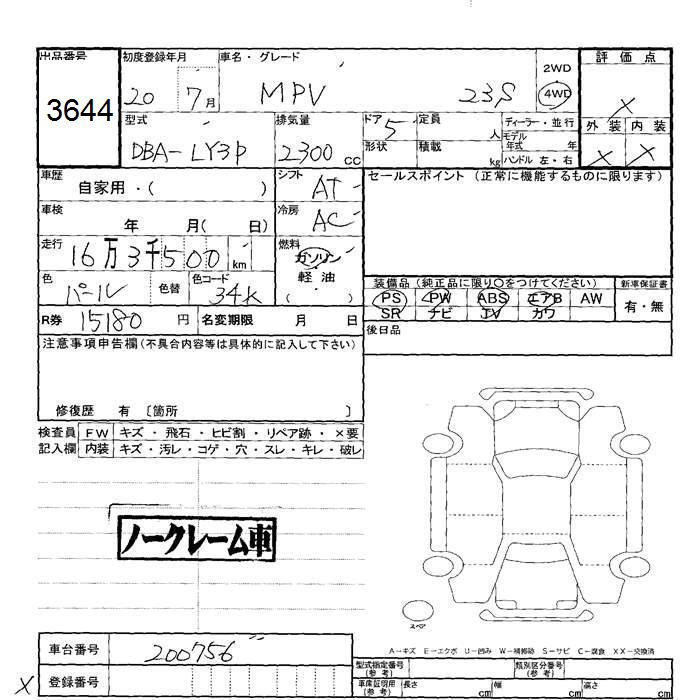 出品番号 初度登録年月 車名・グレード 評価点
3644 20 7月 MPV 23S 2WD 4WD X
型式 排気量 ドア 定員 ディーラー・並行 外装 内装
DBA-LY3P 2300cc 5 人 モデル年式 年 X X
形状 積載 kg ハンドル 左・右
車歴 自家用・( ) シフト AT セールスポイント(正常に機能するものに限ります)
車検 年 月( 日) 冷房 AC
走行 16万3千500km 燃料 ガソリン 軽油 ( )
色 パール 色替 色コード 34K
装備品(純正品に限り○をつけてください) 新車保証書
PS PW ABS エアB AW 有・無
SR ナビ TV カワ
R券 15180円 名変期限 月 日
後日品
注意事項申告欄(不具合内容等は具体的に記入して下さい)
修復歴 有 [箇所 ]
検査員 FW キズ・飛石・ヒビ割・リペア跡・×要
記入欄 内装 キズ・汚レ・コゲ・穴・スレ・キレ・破レ
ノークレーム車
スペア
A-キズ E-エクボ U-凹み W-補修跡 S-サビ C-腐食 XX-交換済
車台番号 200756
X 登録番号
型式指定番号(参考) 類別区分番号(参考)
車庫証明用(参考) 長さ cm 幅 cm 高さ cm